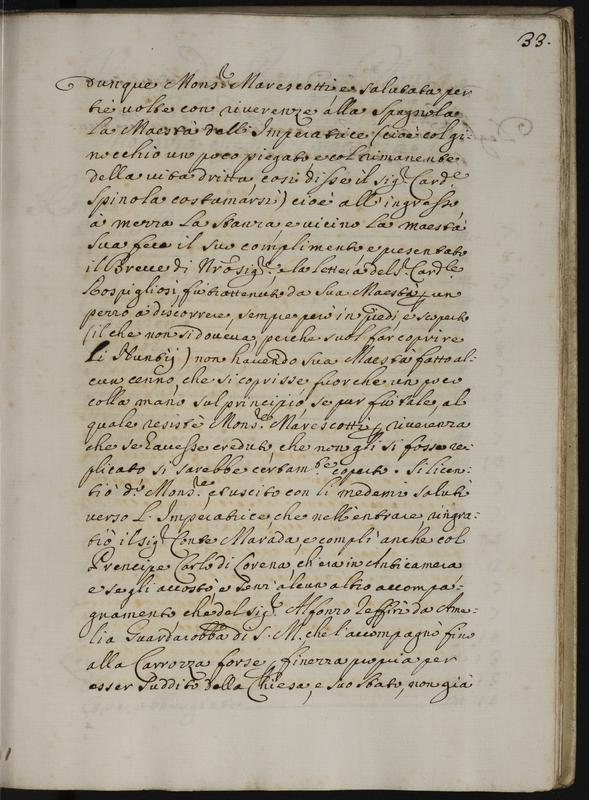 33.
Dunque Mons.r Marescotti, e salutata per
tre volte con riverenze alla Spagnola
la Maestà dell'Imperatrice (cioè col gi-
nocchio un poco piegato, e col rimanente
della vita dritta, così disse il Sig.r Card.le
Spinola costumarsi) cioè all'ingresso
à mezza la stanza e vicino la Maestà
Sua fece il suo complimento, e presentato
il Breve di Nrõ Sig.re e la lettera del S. Card.le
Rospigliosi, fù trattenuto da Sua Maestà p un
pezzo à discorrere, sempre però in piedi, e scoperto
(il che non si doueua, perche suol far coprire
li Nuntij) non hauendo Sua Maestà fatto al-
cun cenno, che si coprisse, fuor che un poco
colla mano sul principio, se pur fù tale, al
quale resistè Mons.r Marescotti p riverenza
che se hauesse creduto, che non gli si fosse re-
plicato si sarebbe certam.te coperto. Si licen-
tiò d.o Mons.re, et uscito con li medemi saluti
verso L'Imperatrice, che nell'entrare, ringra-
tiò il Sig.r Conte Marada, e complì anche col
Prencipe Carlo di Lorena, ch'era in Anticamera
e se gli accostò, e senz'alcun altro accompa-
gnamento che del Sig.r Alfonzo Zeffiri da Ame-
lia Guardarobba di S. M. che l'accompagnò fino
alla Carrozza forse p finezza propria per
esser suddito della Chiesa, e suo stato, non già